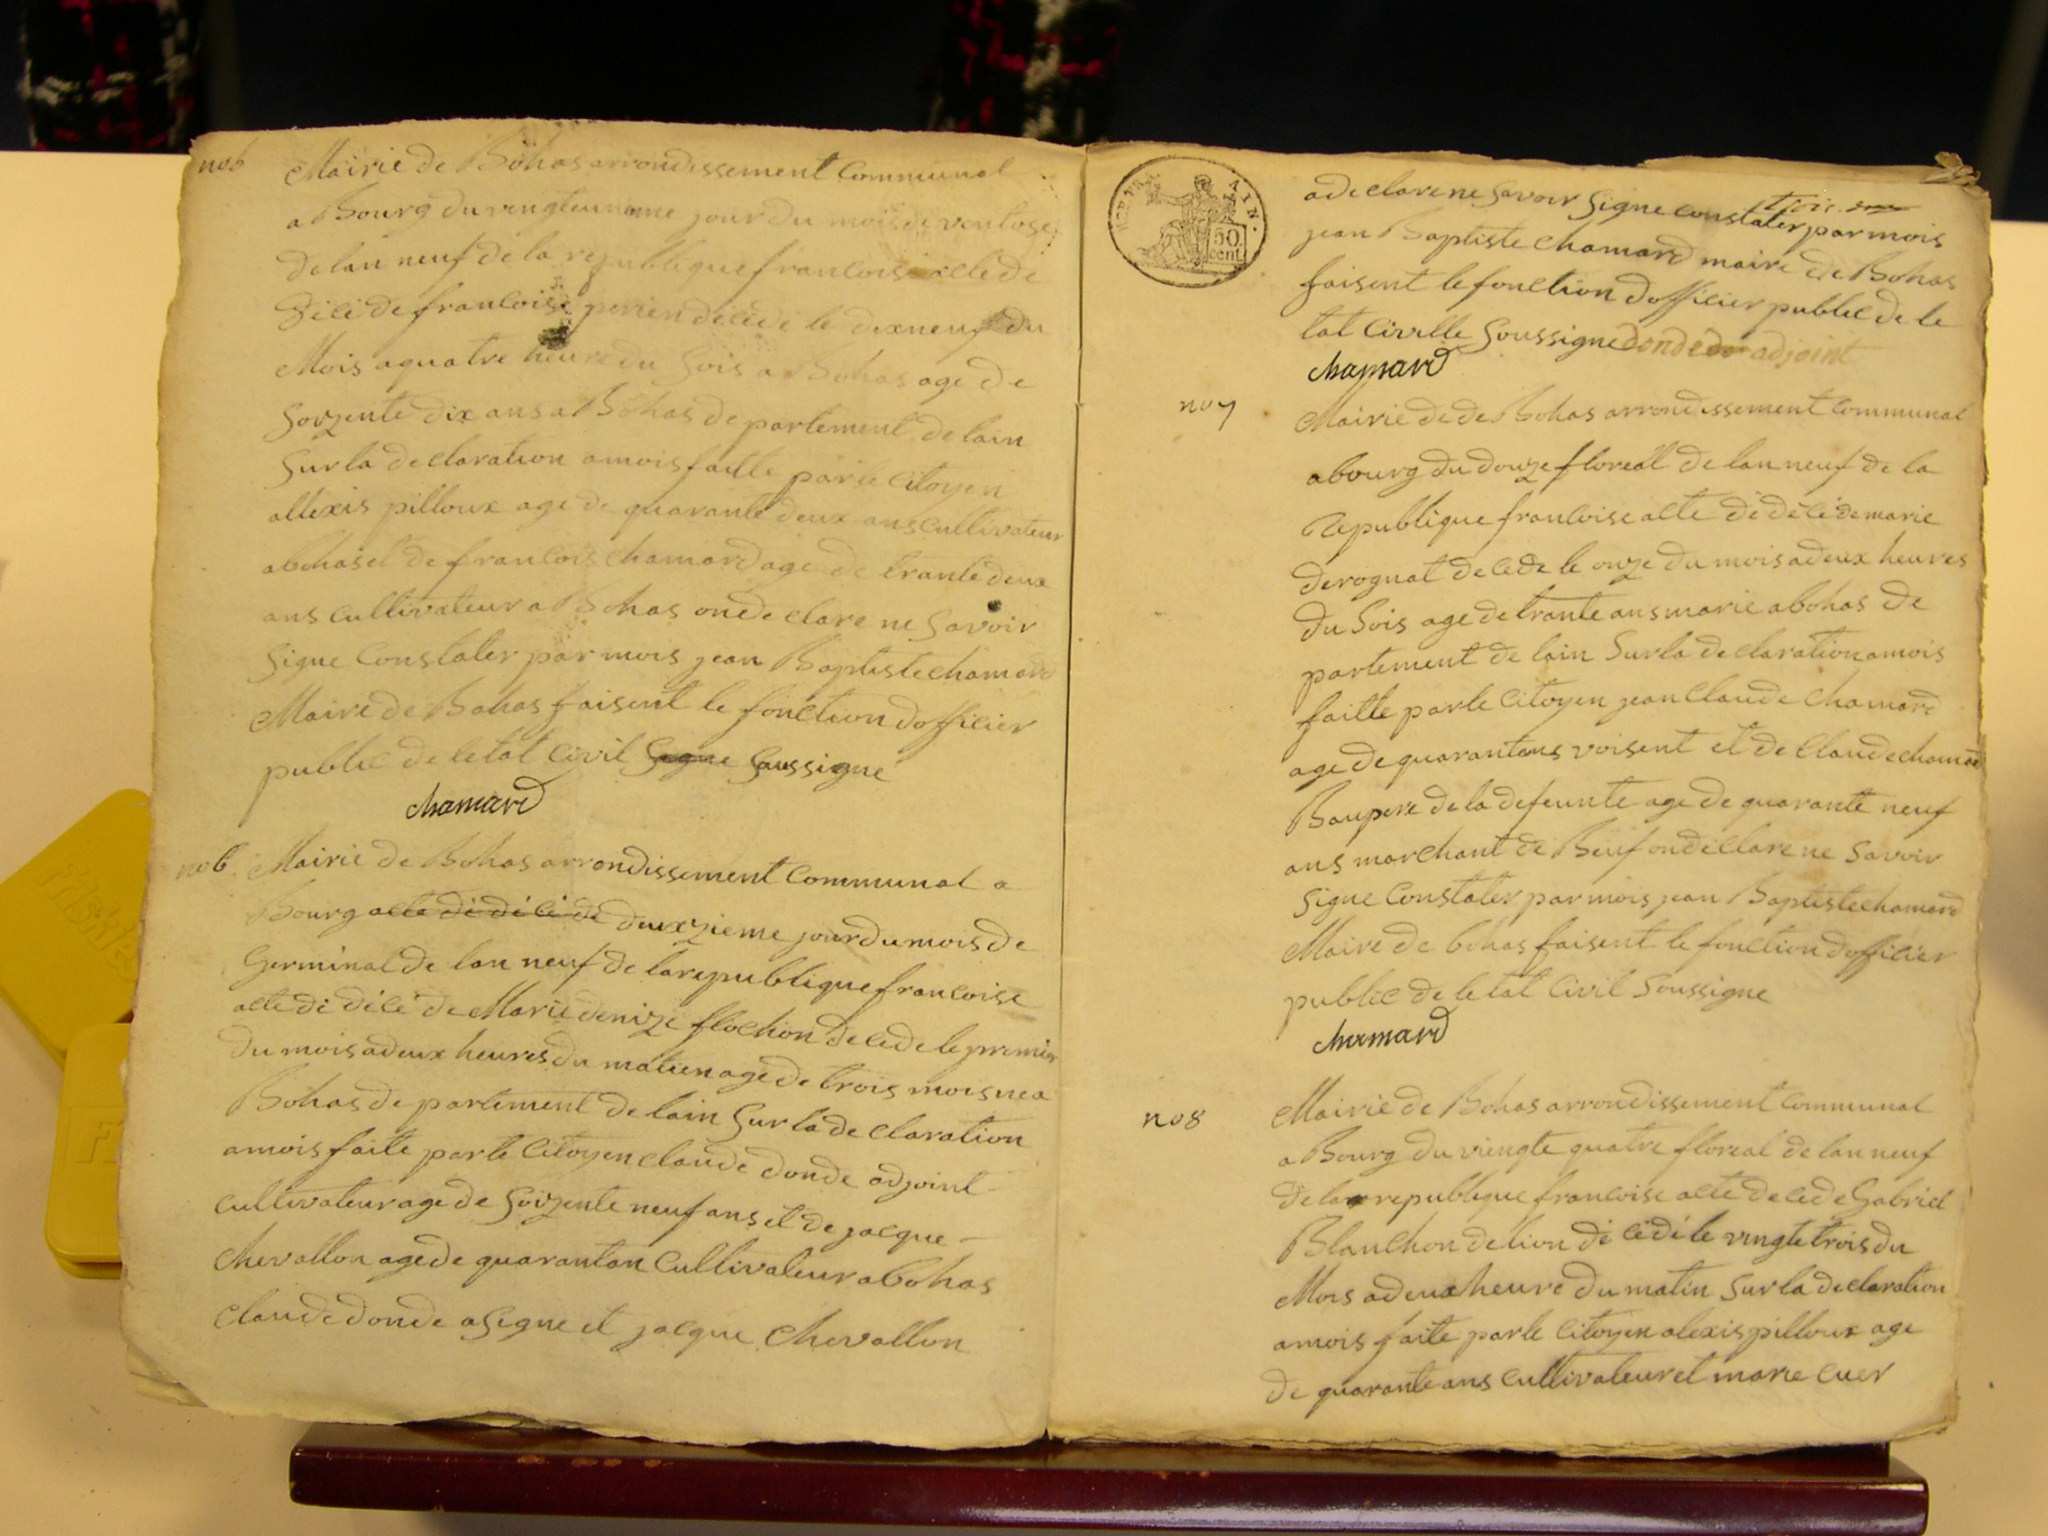 no 6
Mairie de Bohas arrondissement Communal
a Bourg du vengteunieme jour du mois de ventose
de lan neuf de la republique francoise acte de
décé de francoise perien décédé le dixneuf du
Mois a quatre heure du Sois a Bohas age de
Soizente dix ans a Bohas departement de lain
Sur la declaration a mois faitte par le Citoyen
allexis pilloux age de quarante deux ans cultivateur
a bohas et de francois chamard age de trante deux
ans cultivateur a Bohas on declare ne Savoir
Signe Constater par mois jean Baptiste chamard
Maire de Bohas faisent le fonction dofficier
public de letat Civil Signe Soussigne
chamard
no 6
Mairie de Bohas arrondissement Communal a
Bourg acte dé décé de deuxzieme jour du mois de
Germinal de lan neuf de la republique francoise
acte dé décé de Marie denize flochon decede le premier
du mois a deux heures du matien age de trois mois ne a
Bohas de partement de lain Sur la declaration
a mois faite par le Citoyen claude donde adjoint
cultivateur age de Soizente neuf ans et de jacque
chevallon age de quarantan Cultivateur a bohas
claude donde a Signe et jacque chevallon
REP. FRA. AIN.
50 cent.
a declare ne Savoir Signe constater par mois
jean Baptiste chamard maire de Bohas
faisent le fonction dofficier public de le
tat Civille Soussigne donde adjoint
chamard
no 7
Mairie de de Bohas arrondissement Communal
a bourg du douze floreal de lan neuf de la
Republique francoise acte dé décé de marie
derognat decede le onze du mois a deux heures
du Sois age de trante ans marie a bohas de
partement de lain Sur la declaration a mois
faitte par le Citoyen jean Claude Chamard
age de quarantans voisent et de Claude chamard
Baupere de la defeunte age de quarante neuf
ans marchant de Beuf on declare ne Savoir
Signe Constater par mois jean Baptiste chamard
Maire de bohas faisent le fonction dofficier
public de letat Civil Soussigne
chamard
no 8
Mairie de Bohas arrondissement Communal
a Bourg du viengte quatre floreal de lan neuf
de la republique francoise acte decede Gabriel
Blanchon de lion dé cédé le vingte trois du
Mois a deux heure du matin Sur la declaration
a mois faite par le Citoyen alexis pilloux age
de quarante ans cultivateur et marie cuer